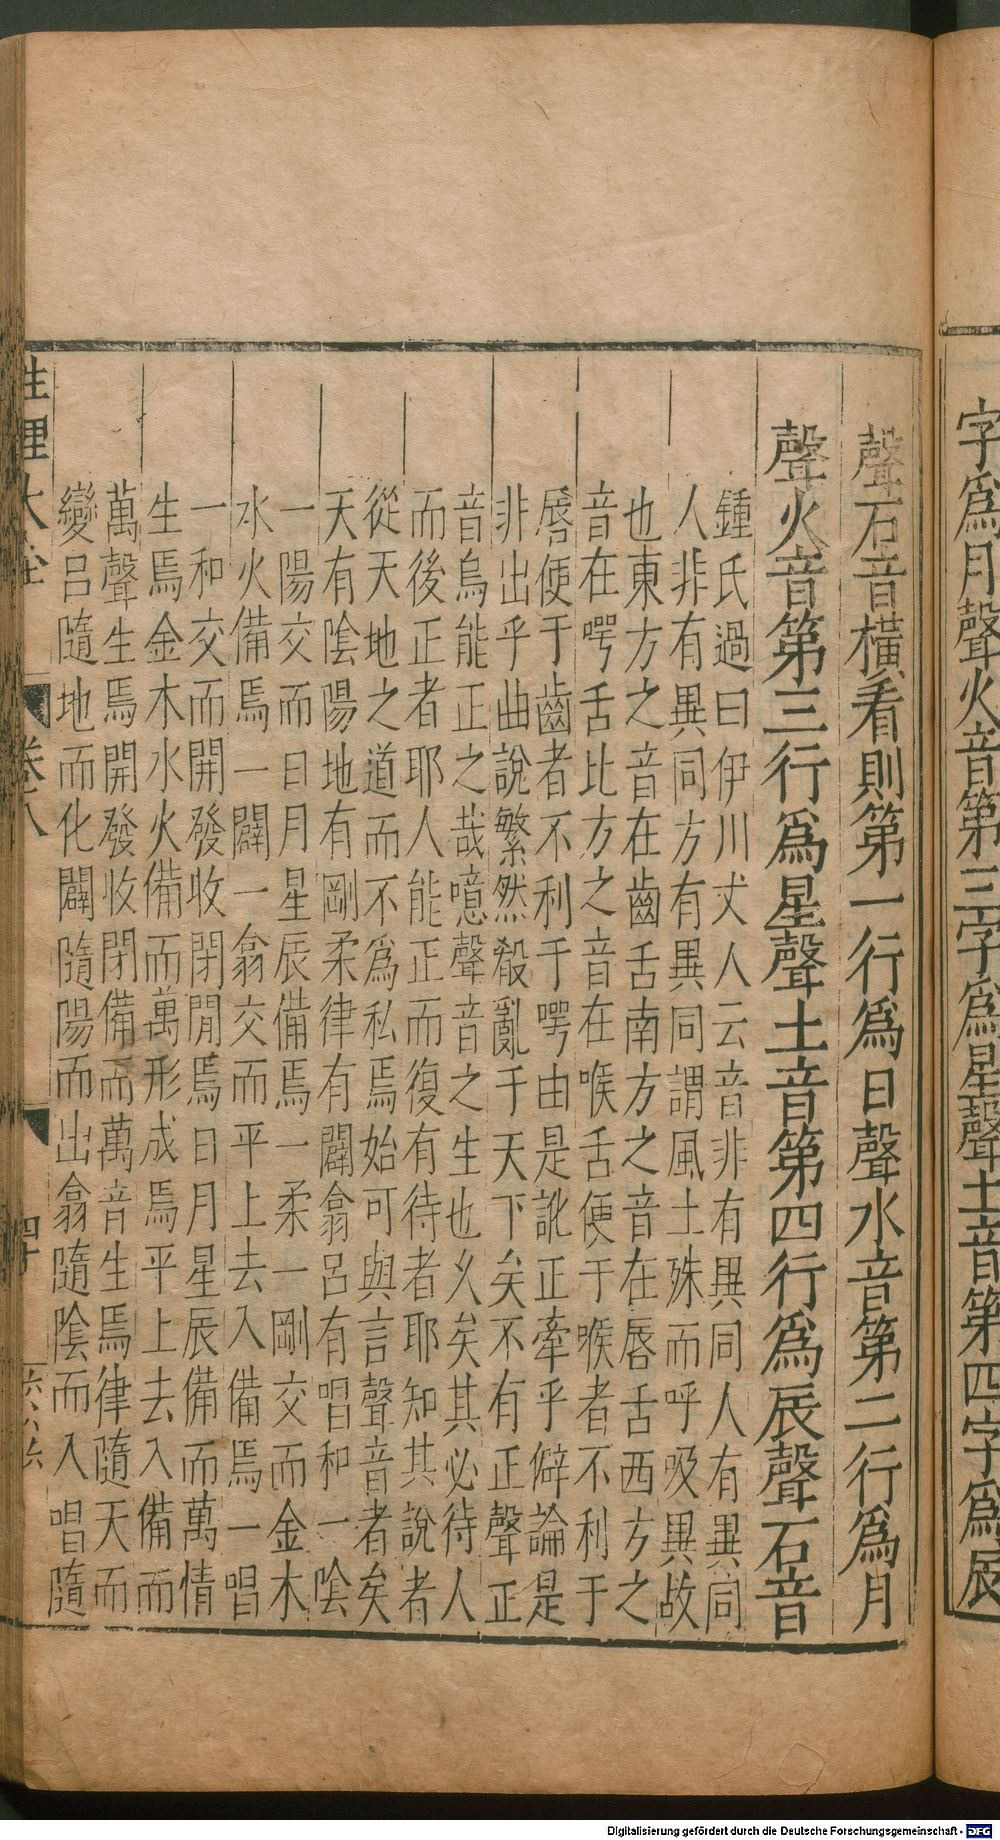 字爲月聲火音第三字爲星聲土音第四字爲辰
聲石音橫看則第一行爲日聲水音第二行爲月
聲火音第三行爲星聲土音第四行爲辰聲石音
鍾氏過曰伊川丈人云音非有異同人有異同
人非有異同方有異同謂風土殊而呼吸異故
也東方之音在齒舌南方之音在唇舌西方之
音在咢舌北方之音在喉舌便于喉者不利于
唇便于齒者不利于咢由是訛正牽乎僻論是
非出乎曲說繁然殽亂于天下矣不有正聲正
音烏能正之哉噫聲音之生也乆矣其必待人
而後正者耶人能正而復有待者耶知其說者
從天地之道而不爲私焉始可與言聲音者矣
天有陰陽地有剛柔律有闢翕呂有唱和一陰
一陽交而日月星辰備焉一柔一剛交而金木
水火備焉一闢一翕交而平上去入備焉一唱
一和交而開發收閉備焉日月星辰備而萬情
生焉金木水火備而萬形成焉平上去入備而
萬聲生焉開發收閉備而萬音生焉律隨天而
變呂隨地而化闢隨陽而出翕隨陰而入唱隨
性理大全 卷八 四十 六八六
Digitalisierung gefördert durch die Deutsche Forschungsgemeinschaft - DFG